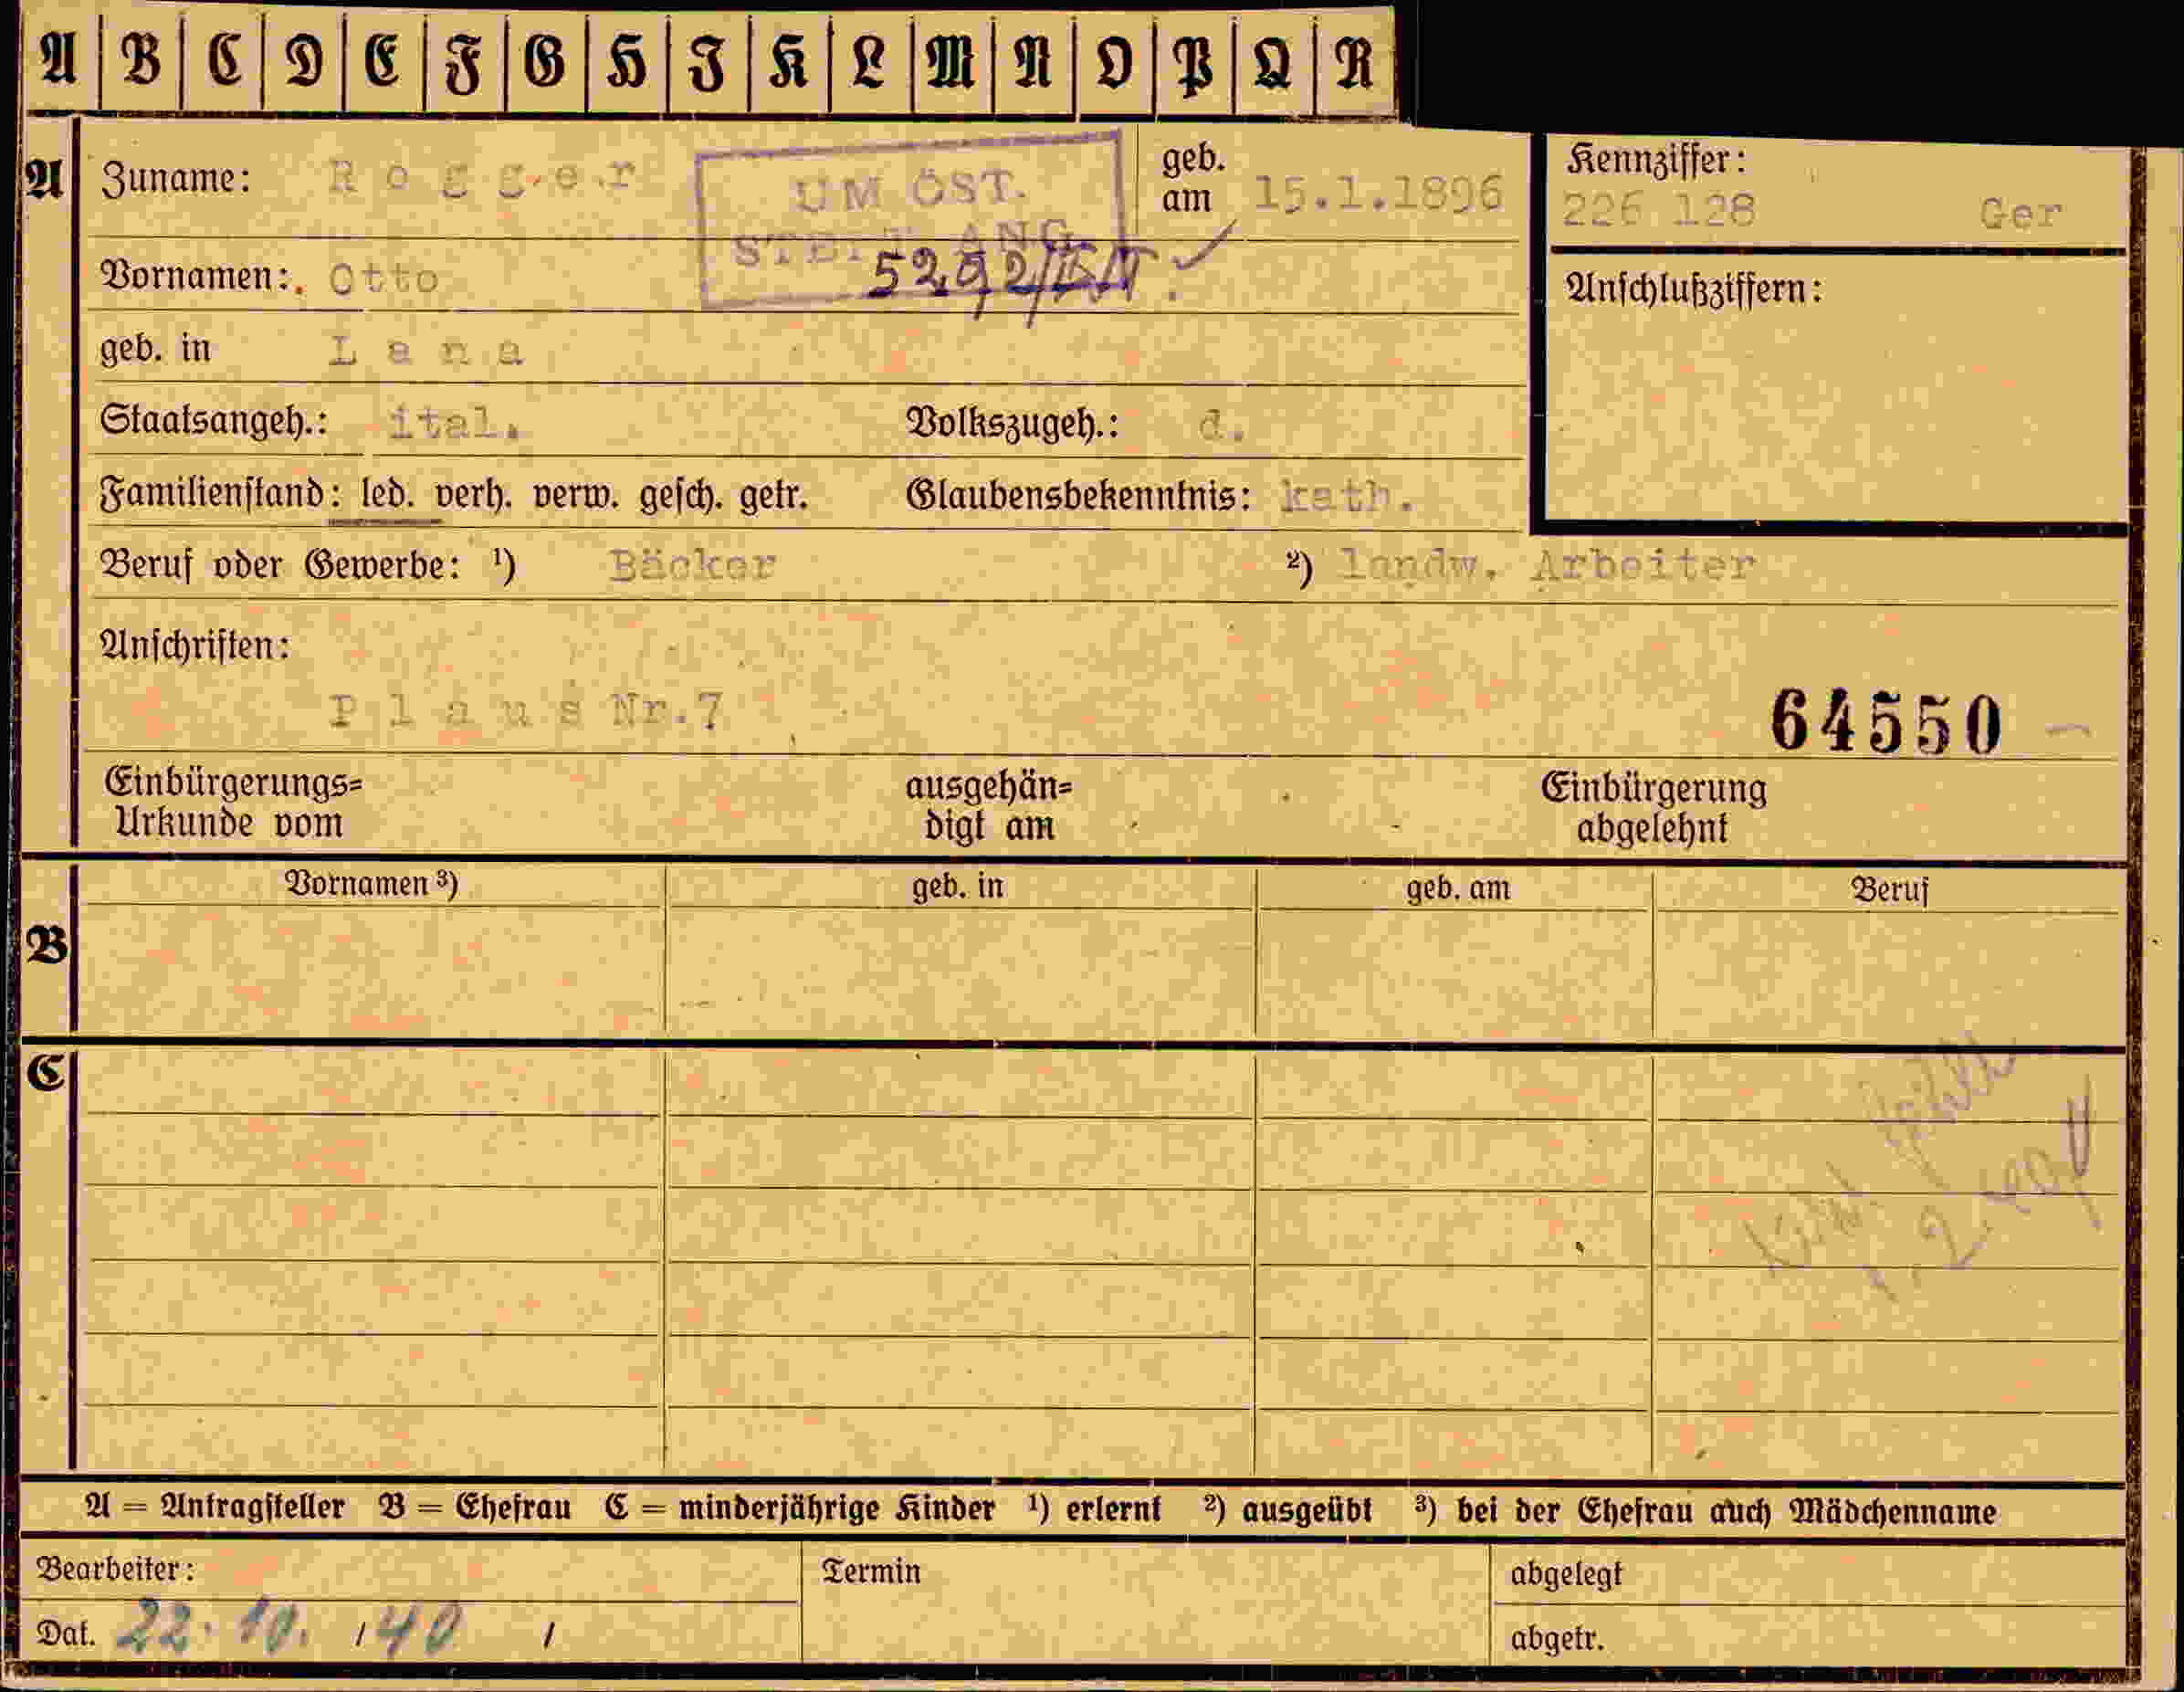 A B C D E F G H I K L M N O P Q R
A Zuname: Rogger geb. am 15.1.1896
UM ÖST.
Kennziffer:
226 128 Ger
Vornamen: Otto
Anschlußziffern:
geb. in Lana
Staatsangeh.: ital. Volkszugeh.: d.
Familienstand: led. verh. verw. gesch. getr. Glaubensbekenntnis: kath.
Beruf oder Gewerbe: ¹) Bäcker ²) landw. Arbeiter
Anschriften:
Plaus Nr.7
64550
Einbürgerungs= ausgehän= Einbürgerung
Urkunde vom digt am abgelehnt
B Vornamen ³) geb. in geb. am Beruf
C
A = Antragsteller B = Ehefrau C = minderjährige Kinder ¹) erlernt ²) ausgeübt ³) bei der Ehefrau auch Mädchenname
Bearbeiter: Termin abgelegt
Dat. 22. 10. / 40 / abgetr.